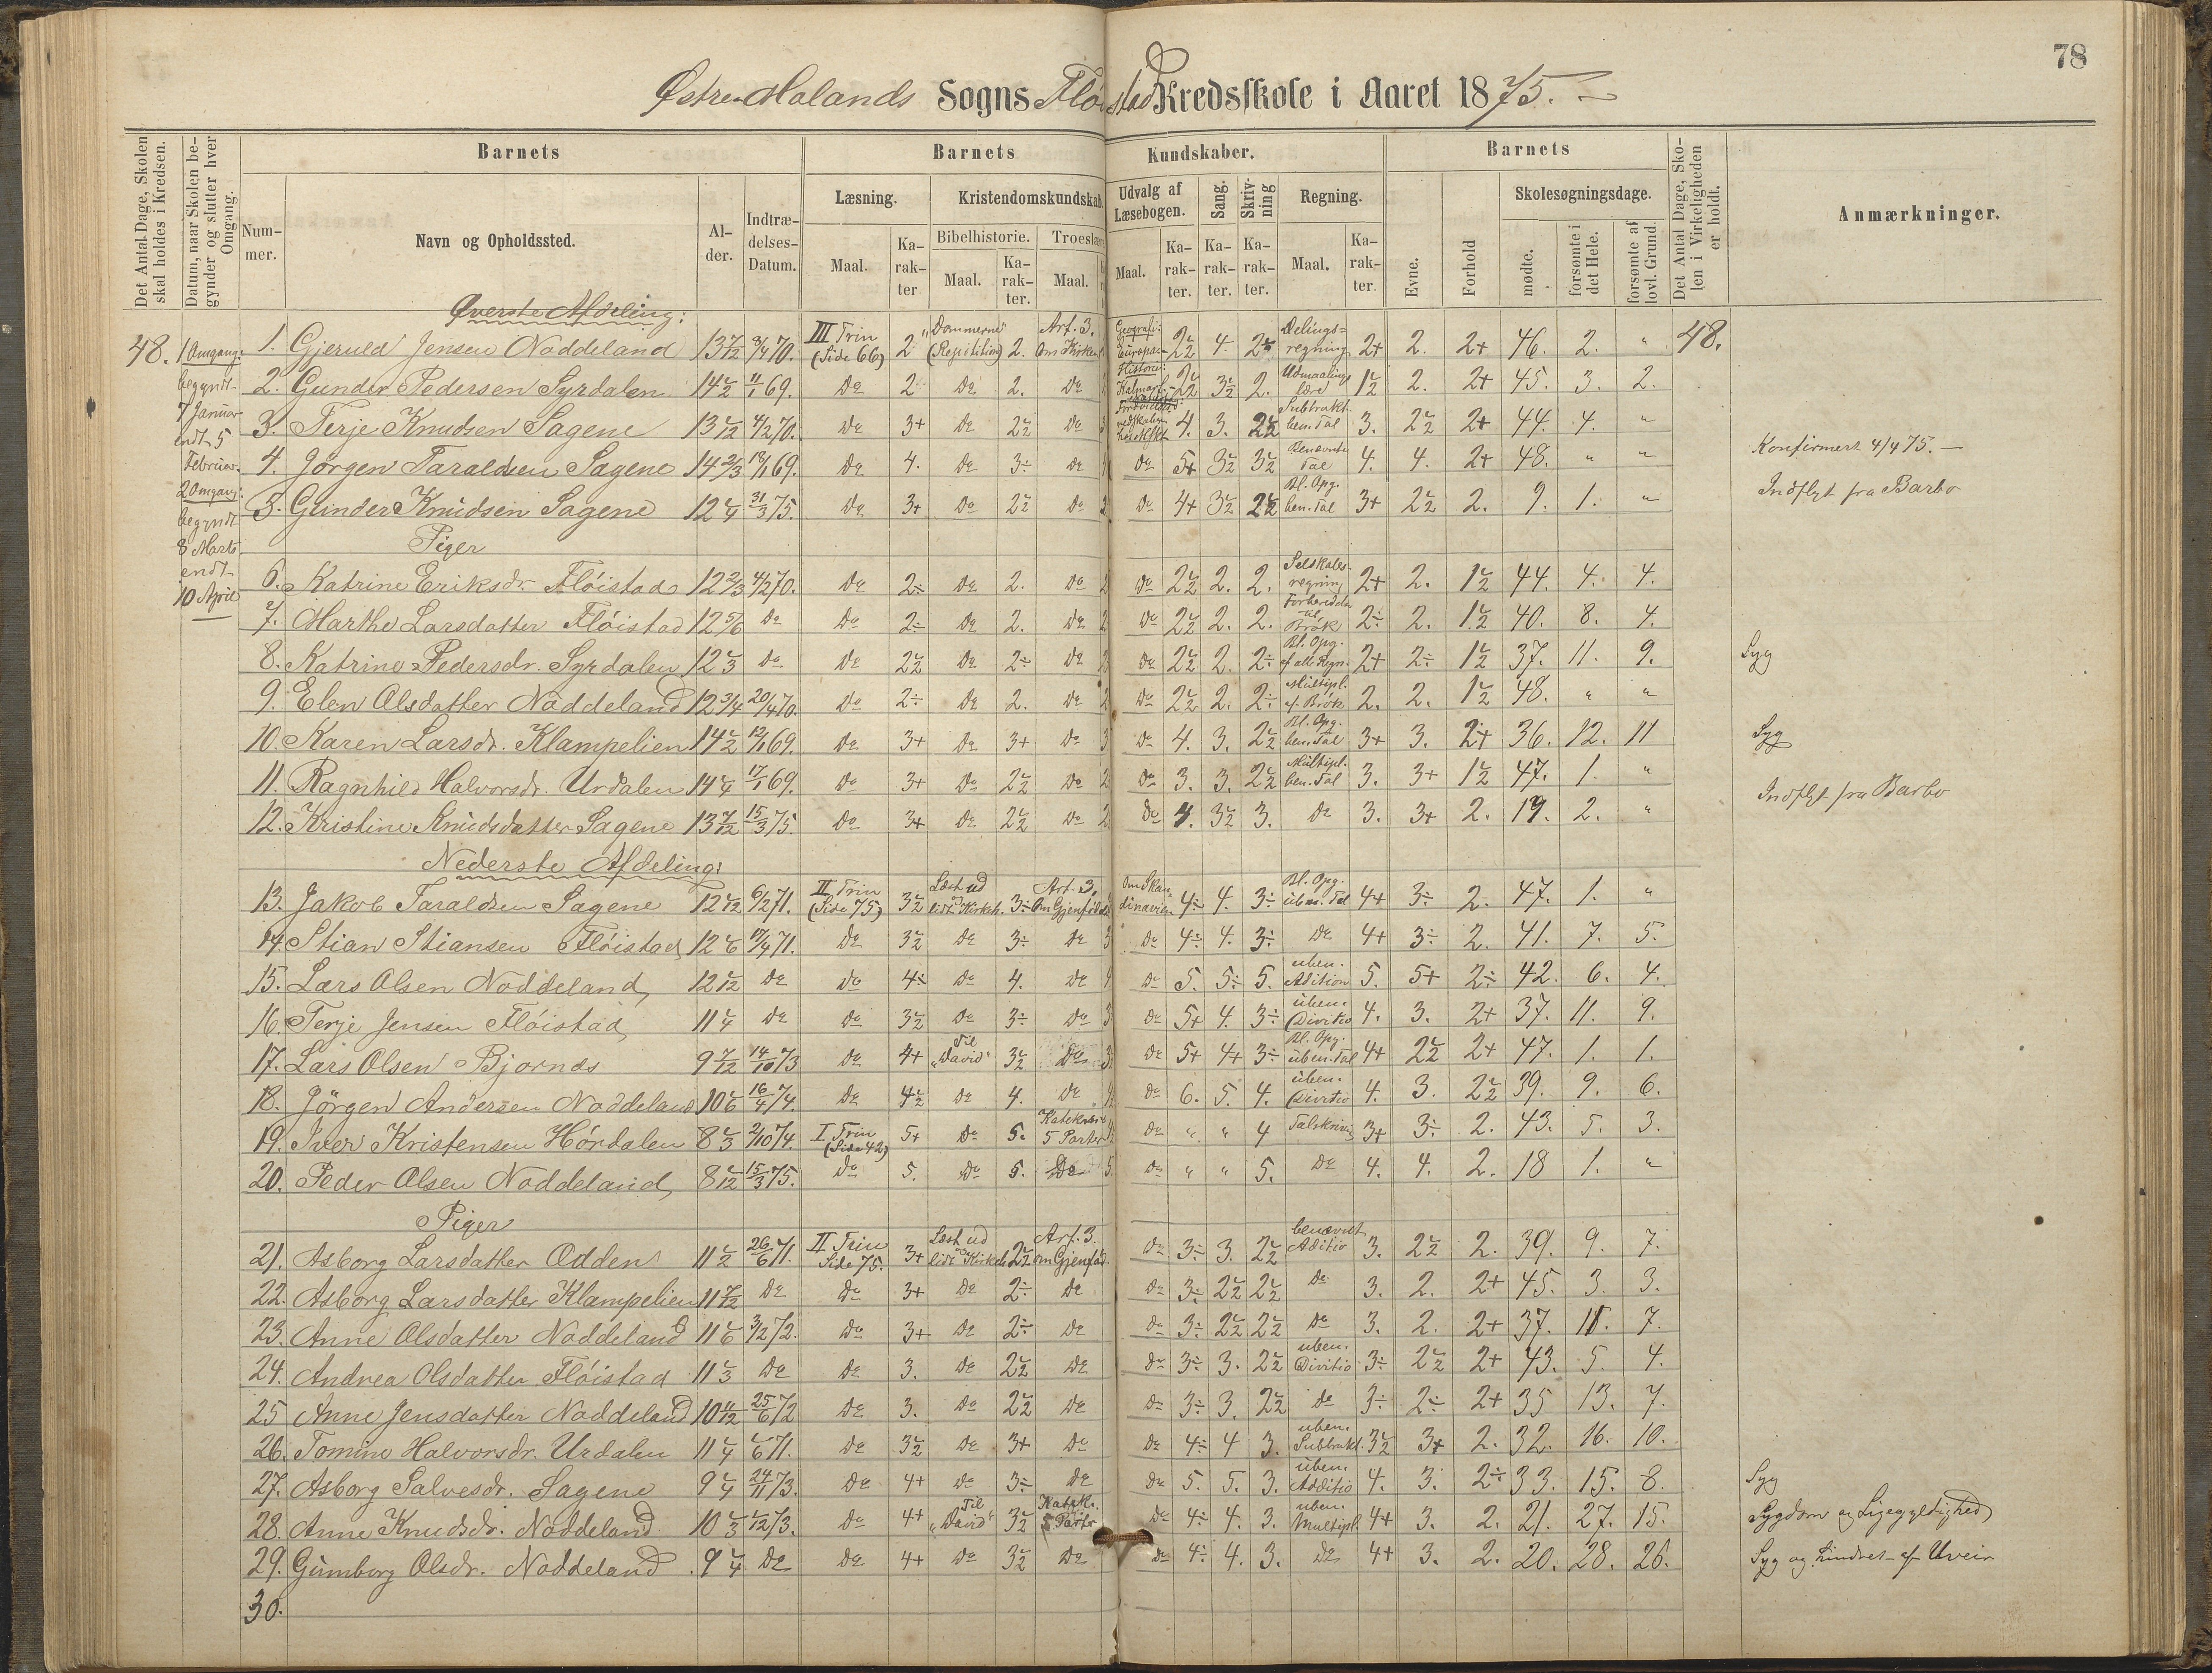 78
Østre Molands Sogns Fløistad Kredsskole i Aaret 1875.
Det Antal Dage, Skolen skal holdes i Kredsen.
Datum, naar Skolen begynder og slutter hver Omgang.
Barnets
Barnets Kundskaber.
Barnets
Det Antal Dage, Skolen i Virkeligheden er holdt.
Anmærkninger.
Nummer.
Navn og Opholdssted.
Alder.
Indtrædelses-Datum.
Læsning.
Kristendomskundskab.
Udvalg af Læsebogen.
Sang.
Skrivning
Regning.
Evne.
Forhold
Skolesøgningsdage.
Bibelhistorie.
Maal.
Karakter
Maal.
Karakter.
Maal.
Maal.
Karakter.
Karakter.
Karakter.
Maal.
Karakter.
mødte.
forsømte i det Hele.
forsømte af lovl. Grund.
48.
1 Omgang:
begyndt
7 Januar
endt 5
Februar.
2 Omgang:
begyndt
8 Marts
endt
10 April
Øverste Afdeling:
1. Gjeruld Jensen Noddeland 13 7/12 8/4 70. III Trin (Side 66) 2 "Dommerne" (Repitition) 2. Art. 3. Om Kirken Geografi: Europa 2½ 4. 2+ Delingsregning 2+ 2. 2+ 46. 2. " 48.
2. Gunder Pedersen Syrdalen 14½ 11/1 69. Do 2 Do 2. Do Historie: Kalmar 2½ 3½ 2. Udmaalingslære 1½ 2. 2+ 45. 3. 2.
3. Terje Knudsen Sagene 13 1/12 4/2 70. Do 3+ Do 2½ Do 4. 3. 2½ Subtrakt. ben. Tal 3. 2½ 2+ 44. 4. "
4. Jørgen Taraldsen Sagene 14 2/3 18/1 69. Do 4. Do 3÷ Do Do 5+ 3½ 3½ Benævnte Tal 4. 4. 2+ 48. " " Konfirmert 4/4 75.
5. Gunder Knudsen Sagene 12¼ 31/3 75. Do 3+ Do 2½ Do Do 4+ 3½ 2½ Bl. Opg. ben. Tal 3+ 2½ 2. 9. 1. " Indflyt fra Barbo
Piger
6. Katrine Eriksdr. Fløistad 12 2/3 4/2 70. Do 2÷ Do 2. Do Do 2½ 2. 2. Selskabsregning 2+ 2. 1½ 44. 4. 4.
7. Marthe Larsdatter Fløistad 12 5/6 Do Do 2÷ Do 2. Do Do 2½ 2. 2. til Brøk 2÷ 2. 1½ 40. 8. 4.
8. Katrine Pedersdr. Syrdalen 12 1/3 Do Do 2½ Do 2÷ Do Do 2½ 2. 2÷ Bl. Opg. af alle Regn. 2+ 2÷ 1½ 37. 11. 9. Syg
9. Elen Olsdatter Noddeland 12 3/4 20/4 70. Do 2÷ Do 2. Do Do 2½ 2. 2÷ Multipl. af Brøk 2. 2. 1½ 48. " "
10. Karen Larsdr. Klampelien 14½ 12/1 69. Do 3+ Do 3+ Do Do 4. 3. 2½ Bl. Opg. ben. Tal 3+ 3. 2+ 36. 12. 11 Syg
11. Ragnhild Halvorsdr. Urdalen 14¼ 17/1 69. Do 3+ Do 2½ Do Do 3. 3. 2½ Multipl. ben. Tal 3. 3+ 1½ 47. 1. "
12. Kristine Knudsdatter Sagene 13 7/12 15/3 75. Do 3+ Do 2½ Do Do 4. 3½ 3. Do 3. 3+ 2. 19. 2. " Indflyt fra Barbo
Nederste Afdeling:
13. Jakob Taraldsen Sagene 12 1/12 6/2 71. II Trin (Side 75) 3½ Læst ud lidt Kirkeh. 3÷ Art. 3. Om Gjenfød Om Skandinavien 4÷ 4. 3÷ Bl. Opg. uben. Tal 4+ 3÷ 2. 47. 1. "
14. Stian Stiansen Fløistad 12 1/6 17/4 71. Do 3½ Do 3÷ Do Do 4÷ 4. 3÷ Do 4+ 3÷ 2. 41. 7. 5.
15. Lars Olsen Noddeland 12 1/12 Do Do 4÷ Do 4. Do Do 5. 5÷ 5. uben. Adition 5. 5+ 2÷ 42. 6. 4.
16. Terje Jensen Fløistad 11¼ Do Do 3½ Do 3÷ Do Do 5+ 4. 3÷ uben. Divitio 4. 3. 2+ 37. 11. 9.
17. Lars Olsen Bjornes 9 7/12 14/10 73 Do 4+ Til "David" 3½ Do Do 5+ 4+ 3÷ Bl. Opg. uben. Tal 4+ 2½ 2+ 47. 1. 1.
18. Jørgen Andersen Noddeland 10 1/6 16/4 74. Do 4½ Do 4. Do Do 6. 5. 4. uben. Divitio 4. 3. 2½ 39. 9. 6.
19. Iver Kristensen Hørdalen 8 1/3 2/10 74. I Trin (Side 42) 5+ Do 5. 5 Parter Do " " 4 Talskriv 3+ 3÷ 2. 43. 5. 3.
20. Peder Olsen Noddeland 8 1/12 15/3 75. Do 5. Do 5. Do Do " " 5. Do 4. 4. 2. 18 1. "
Piger
21. Asborg Larsdatter Odden 11½ 26/6 71. II Trin Side 75. 3+ Læst ud lidt Kirkeh 2½ Art. 3. om Gjenfød. Do 3÷ 3. 2½ benævnt Aditio 3. 2½ 2. 39. 9. 7.
22. Asborg Larsdatter Klampelien 11 7/12 Do Do 3+ Do 2÷ Do Do 3÷ 2½ 2½ Do 3. 2. 2+ 45. 3. 3.
23. Anne Olsdatter Noddeland 11 1/6 3/2 72. Do 3+ Do 2÷ Do Do 3÷ 2½ 2½ Do 3. 2. 2+ 37. 11. 7.
24. Andrea Olsdatter Fløistad 11 1/3 Do Do 3. Do 2½ Do Do 3÷ 3. 2½ uben. Divitio 3÷ 2½ 2+ 43. 5. 4.
25 Anne Jensdatter Noddeland 10 11/12 25/6 72 Do 3. Do 2½ Do Do 3÷ 3. 2½ Do 3÷ 2÷ 2+ 35 13. 7.
26. Tomine Halvorsdr. Urdalen 11¼ 71. Do 3½ Do 3+ Do Do 4÷ 4 3. uben. Subtrakt. 3½ 3+ 2. 32. 16. 10.
27. Asborg Salvesdr. Sagene 9¼ 24/11 73. Do 4+ Do 3÷ Do Do 5. 5. 3. uben. Additio 4. 3. 2÷ 33. 15. 8. Syg
28. Anne Knudsdr. Noddeland 10 1/3 1/12 73. Do 4+ Til "David" 3½ Katek. 5 Parter Do 4÷ 4. 3. uben. Multipl. 4+ 3. 2. 21. 27. 15. Sygdom og Ligegyldighed
29. Gunborg Olsdr. Noddeland 9¼ Do Do 4+ Do 3½ Do Do 4÷ 4. 3. Do 4+ 3. 2. 20. 28. 26. Syg og hindret af Uveir
30.